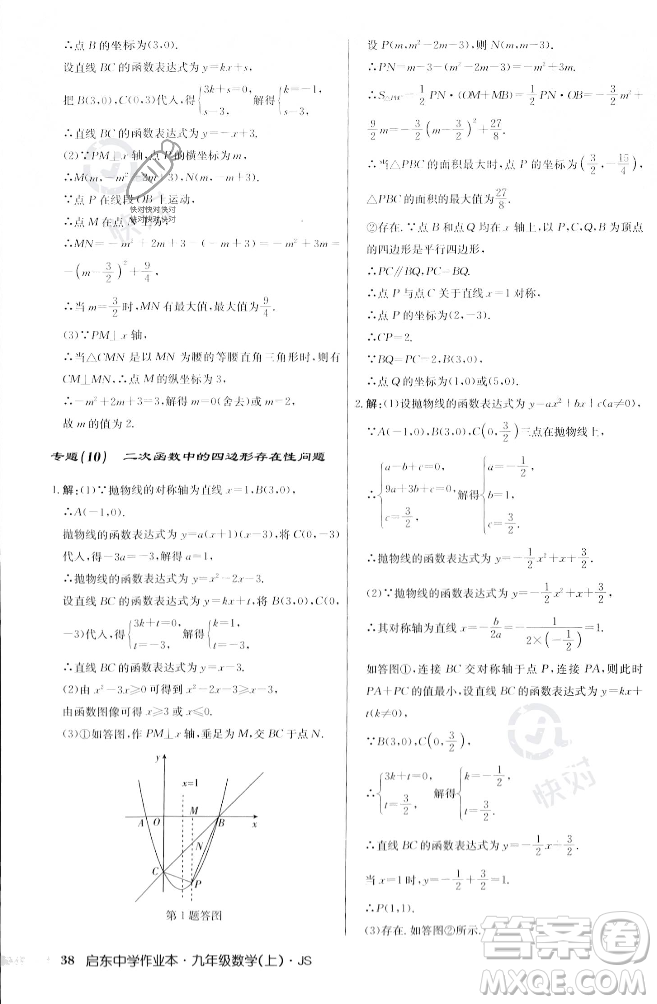 ∴点 B 的坐标为(3,0).
设直线 BC 的函数表达式为 y=kx+s,
把 B(3,0),C(0,3)代入,得{3k+s=0, s=3, 解得{
∴直线 BC 的函数表达式为 y=-x+3.
(2)∵PM⊥x 轴,点 P 的横坐标为 m,
∴M(m,-m²+2m+3)
∵点 P 在线段 OB 上运动,
∴点 M 在
∴MN=-m²+2m+3-(-m+3)=-m²+3m=
-(m-3/2)²+9/4,
∴当 m=3/2 时,MN 有最大值,最大值为 9/4.
(3)∵PM⊥x 轴,
∴当△CMN 是以 MN 为腰的等腰直角三角形时,有
CM⊥MN,∴点 M 的纵坐标为 3,
∴-m²+2m+3=3,解得 m=0(舍去)或 m=2.
故 m 的值为 2.
专题(10) 二次函数中的四边形存在性问题
1.解:(1)∵抛物线的对称轴为直线 x=1,B(3,0),
∴A(-1,0).
抛物线的函数表达式为 y=a(x+1)(x-3),将 C(0,-3)
代入,得-3a=-3,解得 a=1,
∴抛物线的函数表达式为 y=x²-2x-3.
设直线 BC 的函数表达式为 y=kx+t,将 B(3,0),C(0,
-3)代入,得{3k+t=0, t=-3, 解得{k=1, t=-3,
∴直线 BC 的函数表达式为 y=x-3.
(2)由 x²-3x>0,得 x²-2x-3>x-3,
由函数图像可得 x<0 或 x>3.
(3)①如答图,作 PM⊥x 轴,垂足为 M,交 BC 于点 N.
y
x=1
A O M B x
N
C
P
第 1 题答图
设 P(m,m²-2m-3),则 N(m,m-3).
∴PN=m-3-(m²-2m-3)=-m²+3m.
∴S△PBC=1/2PN·(OM+MB)=1/2PN·OB=-3/2m²+
9/2m=-3/2(m-3/2)²+27/8,
∴当△PBC 的面积最大时,点 P 的坐标为(3/2,-15/4),
△PBC 的面积的最大值为 27/8.
②存在.∵以点 B 和点 Q 及点 C、点 P 为顶点
的四边形是平行四边形,
∴PC∥BQ,PC=BQ.
∴点 P 与点 C 关于直线 x=1 对称,
∴点 P 的坐标为(2,-3).
∴CP=2.
∵BQ=PC=2,
∴点 Q 的坐标为(1,0)或(5,0).
2.解:(1)设抛物线的函数表达式为 y=ax²+bx+c(a≠0),
∵A(-1,0),B(3,0),C(0,3/2)三点在抛物线上,
∴{a-b+c=0, 9a+3b+c=0, c=3/2, 解得{a=-1/2, b=1, c=3/2,
∴抛物线的函数表达式为 y=-1/2x²+x+3/2.
(2)∵抛物线的函数表达式为 y=-1/2x²+x+3/2,
∴其对称轴为直线 x=-b/2a=-1/(2×(-1/2))=1.
如答图①,连接 BC 交对称轴于点 P,连接 PA,则此时
PA+PC 的值最小,设直线 BC 的函数表达式为 y=kx+
t(k≠0),
∵B(3,0),C(0,3/2),
∴{3k+t=0, t=3/2, 解得{k=-1/2, t=3/2,
∴直线 BC 的函数表达式为 y=-1/2x+3/2.
当 x=1 时,y=-1/2+3/2=1,
∴P(1,1).
(3)存在.如答图②所示.
38 启东中学作业本·九年级数学(上)·JS